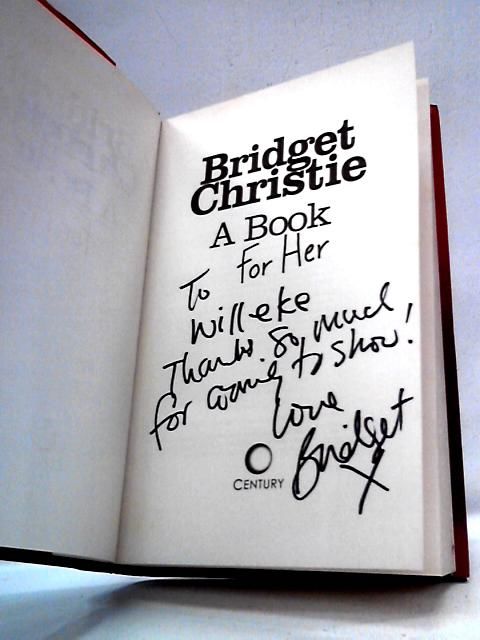 Bridget
Christie
A Book
For Her
To
Willeke
Thanks So much
for coming to show!
love
Bridget
x
CENTURY